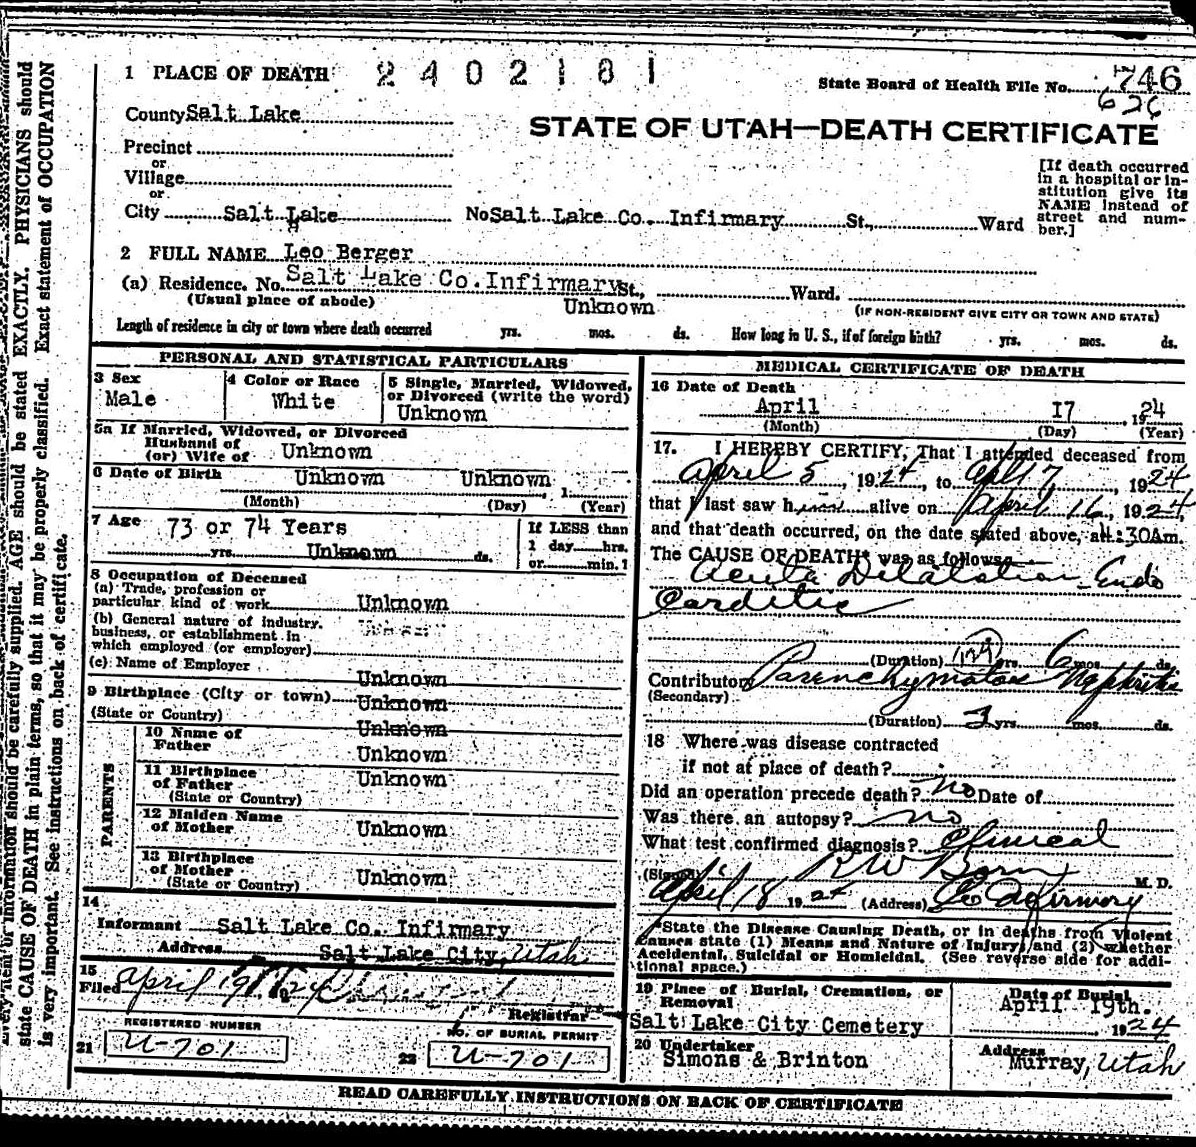 1 PLACE OF DEATH 2402181
State Board of Health File No. 746
626
County Salt Lake
STATE OF UTAH—DEATH CERTIFICATE
Precinct
or
Village
or
City Salt Lake No Salt Lake Co. Infirmary St., Ward
[If death occurred in a hospital or institution give its NAME instead of street and number.]
2 FULL NAME Leo Berger
(a) Residence. No. Salt Lake Co. Infirmary St., Ward.
(Usual place of abode) Unknown (IF NON-RESIDENT GIVE CITY OR TOWN AND STATE)
Length of residence in city or town where death occurred yrs. mos. ds. How long in U. S., if of foreign birth? yrs. mos. ds.
PERSONAL AND STATISTICAL PARTICULARS
3 Sex
Male
4 Color or Race
White
5 Single, Married, Widowed, or Divorced (write the word)
Unknown
5a If Married, Widowed, or Divorced
Husband of
(or) Wife of Unknown
6 Date of Birth Unknown Unknown 1
(Month) (Day) (Year)
7 Age 73 or 74 Years
yrs. Unknown ds.
If LESS than
1 day hrs.
or min. 1
8 Occupation of Deceased
(a) Trade, profession or
particular kind of work Unknown
(b) General nature of industry.
business, or establishment in
which employed (or employer)
(c) Name of Employer Unknown
9 Birthplace (City or town) Unknown
(State or Country) Unknown
PARENTS
10 Name of
Father Unknown
11 Birthplace
of Father Unknown
(State or Country)
12 Maiden Name
of Mother Unknown
13 Birthplace
of Mother
(State or Country) Unknown
14
Informant Salt Lake Co. Infirmary
Address Salt Lake City, Utah
15
Filed April 19
Registrar
REGISTERED NUMBER
21 U-701
NO. OF BURIAL PERMIT
22 U-701
MEDICAL CERTIFICATE OF DEATH
16 Date of Death
April 17 1924
(Month) (Day) (Year)
17. I HEREBY CERTIFY, That I attended deceased from
April 5, 1924, to Apl 17, 1924
that I last saw him alive on April 16, 1924,
and that death occurred, on the date stated above, at 4:30 Am.
The CAUSE OF DEATH* was as follows:
Acute Dilatation Endo
Carditis
(Duration) yrs. 6 mos. ds.
Contributory Parenchymatous Nephritis
(Secondary)
(Duration) 3 yrs. mos. ds.
18 Where was disease contracted
if not at place of death?
Did an operation precede death? no Date of
Was there an autopsy? no
What test confirmed diagnosis? Clinical
(Signed) R W Born M. D.
April 18 1924 (Address) Co Infirmary
*State the Disease Causing Death, or in deaths from Violent
Causes state (1) Means and Nature of Injury, and (2) whether
Accidental, Suicidal or Homicidal. (See reverse side for addi-
tional space.)
19 Place of Burial, Cremation, or
Removal
Salt Lake City Cemetery
Date of Burial
April 19th.
1924
20 Undertaker
Simons & Brinton
Address
Murray, Utah
READ CAREFULLY INSTRUCTIONS ON BACK OF CERTIFICATE
information should be carefully supplied. AGE should be stated EXACTLY. PHYSICIANS should
state CAUSE OF DEATH in plain terms, so that it may be properly classified. Exact statement of OCCUPATION
is very important. See instructions on back of certificate.